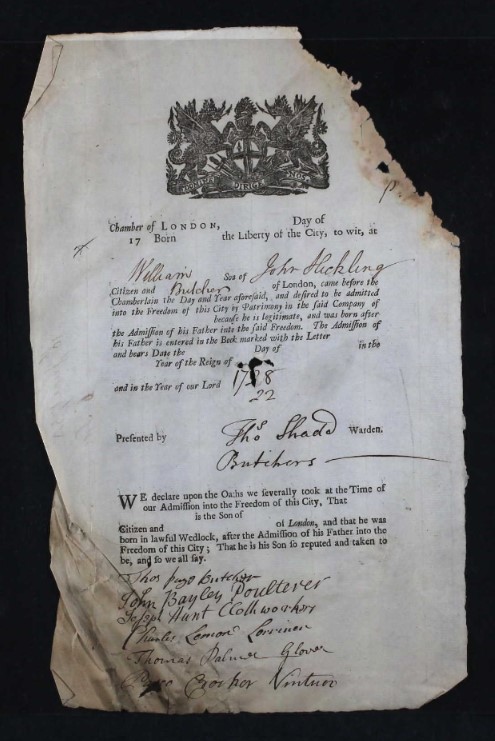 DOMINE DIRIGE NOS
p
Chamber of LONDON, Day of
17 Born the Liberty of the City, to wit, at
William Son of John Hickling
Citizen and Butcher of London, came before the
Chamberlain the Day and Year aforesaid, and desired to be admitted
into the Freedom of this City by Patrimony in the said Company of
because he is legitimate, and was born after
the Admission of his Father into the said Freedom. The Admission of
his Father is entered in the Book marked with the Letter
and bears Date the Day of in the
Year of the Reign of
and in the Year of our Lord 1728
22
Presented by Thos Shadd Warden.
Butchers
WE declare upon the Oaths we severally took at the Time of
our Admission into the Freedom of this City, That
is the Son of
Citizen and of London, and that he was
born in lawful Wedlock, after the Admission of his Father into the
Freedom of this City; That he is his Son so reputed and taken to
be, and so we all say.
Thos Butcher
John Bayley Poulterer
Joseph Hunt Clothworker
Charles Lemon Lorriner
Thomas Palmer Glover
Crocker Vintner